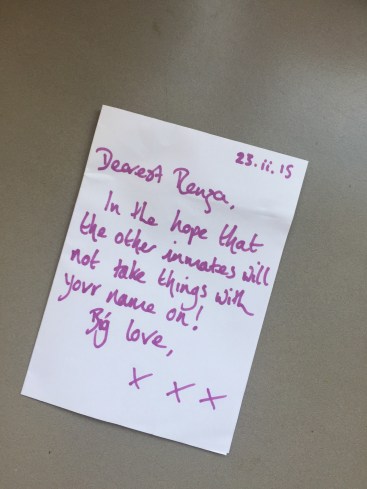 23.ii.15
Dearest Renza,
In the hope that
the other inmates will
not take things with
your name on!
Big love,
x x x